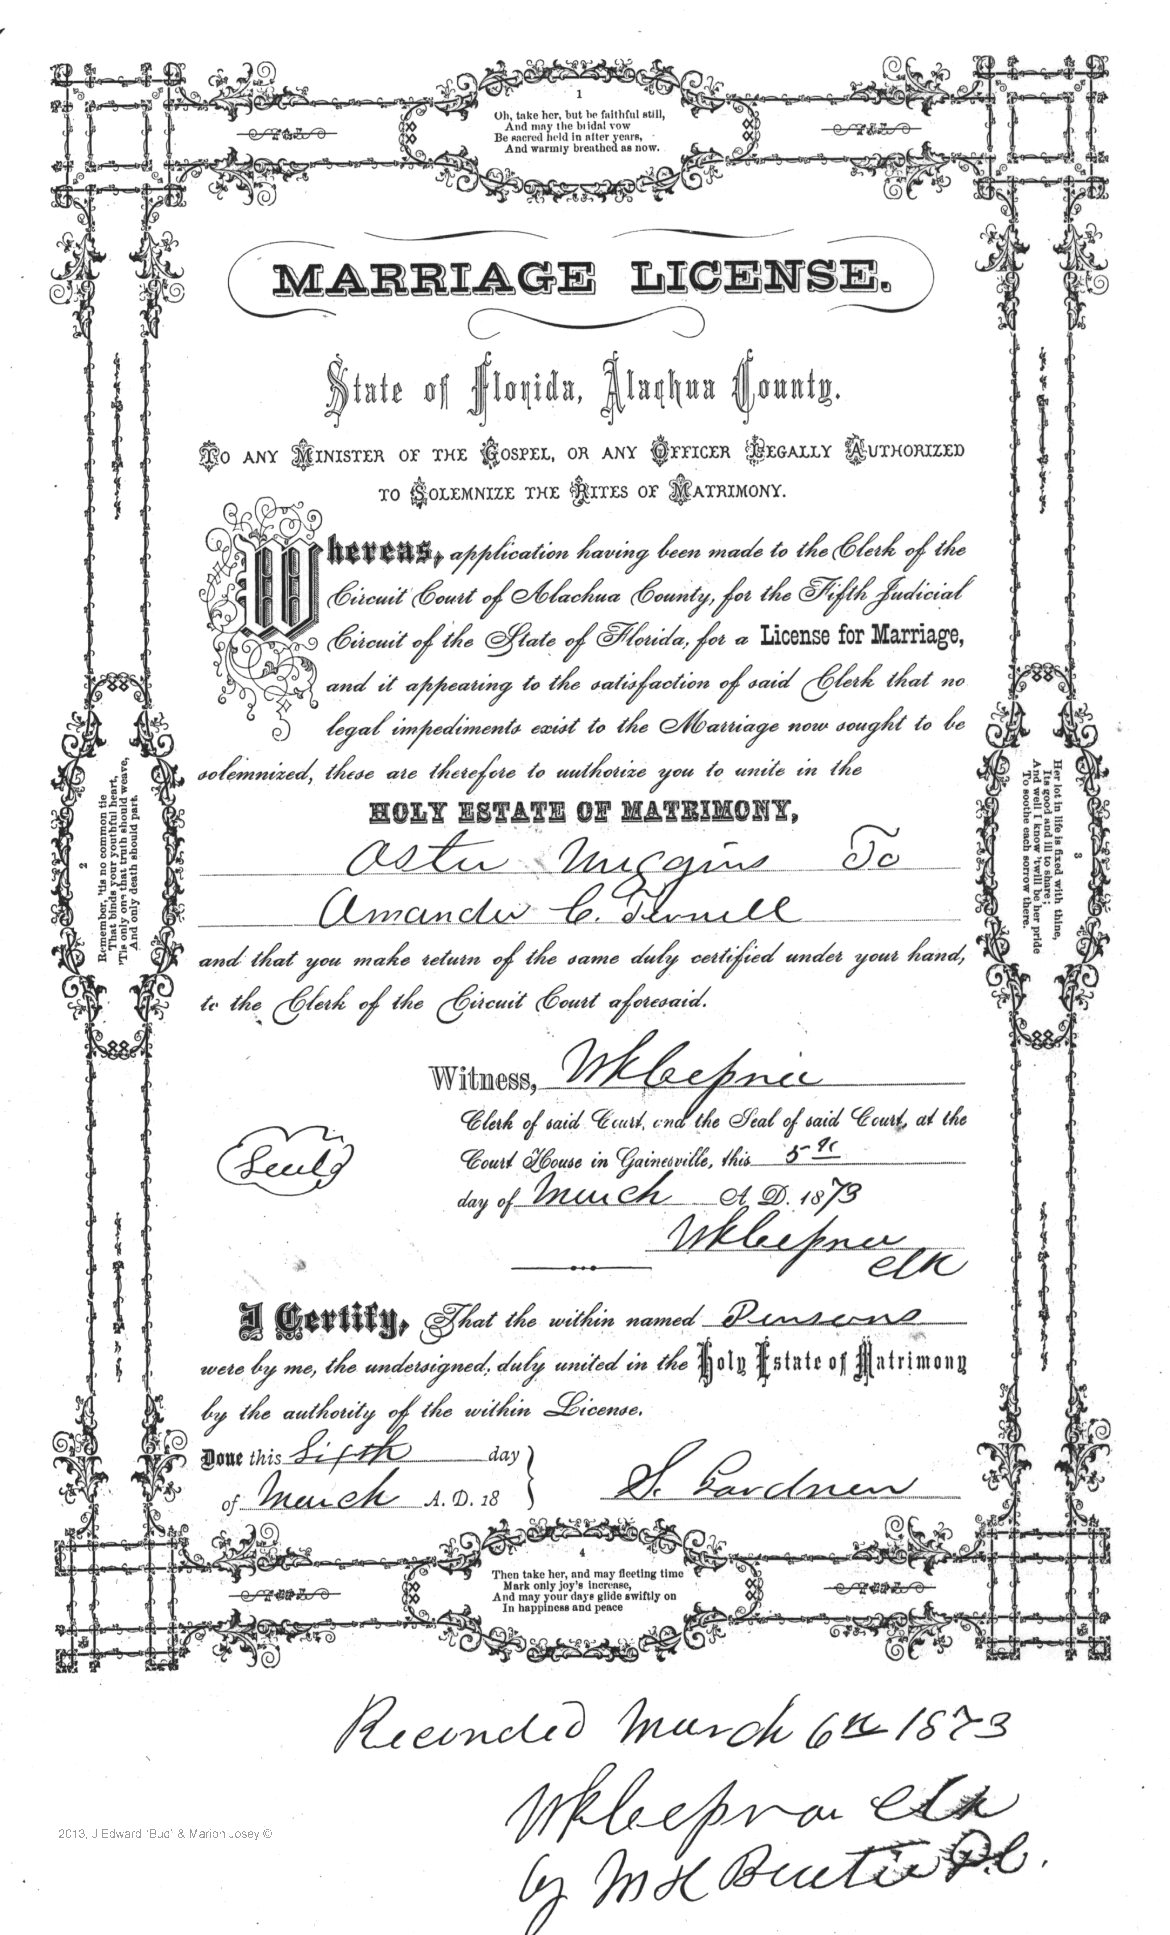 1
Oh, take her, but be faithful still,
And may the bridal vow
Be sacred held in after years,
And warmly breathed as now.
MARRIAGE LICENSE.
State of Florida, Alachua County.
TO ANY MINISTER OF THE GOSPEL, OR ANY OFFICER LEGALLY AUTHORIZED
TO SOLEMNIZE THE RITES OF MATRIMONY.
Whereas, application having been made to the Clerk of the
Circuit Court of Alachua County, for the Fifth Judicial
Circuit of the State of Florida, for a License for Marriage,
and it appearing to the satisfaction of said Clerk that no
legal impediments exist to the Marriage now sought to be
solemnized, these are therefore to authorize you to unite in the
HOLY ESTATE OF MATRIMONY,
To
Amanda C.
and that you make return of the same duly certified under your hand,
to the Clerk of the Circuit Court aforesaid.
2
Remember, 'tis no common tie
That binds your youthful heart,
'Tis only one that truth should weave,
And only death should part.
3
Her lot in life is fixed with thine,
Its good and ill to share;
And well I know 'twill be her pride
To soothe each sorrow there.
Witness,
Clerk of said Court, and the Seal of said Court, at the
Court House in Gainesville, this 5th
day of March A. D. 1873
Seal
Clk
I Certify, That the within named Persons
were by me, the undersigned, duly united in the Holy Estate of Matrimony
by the authority of the within License.
Done this Sixth day
of March A. D. 18
S. Gardner
4
Then take her, and may fleeting time
Mark only joy's increase,
And may your days glide swiftly on
In happiness and peace
Recorded March 6th 1873
Clk
by M H D.C.
2013, J Edward 'Bud' & Marion Josey ©